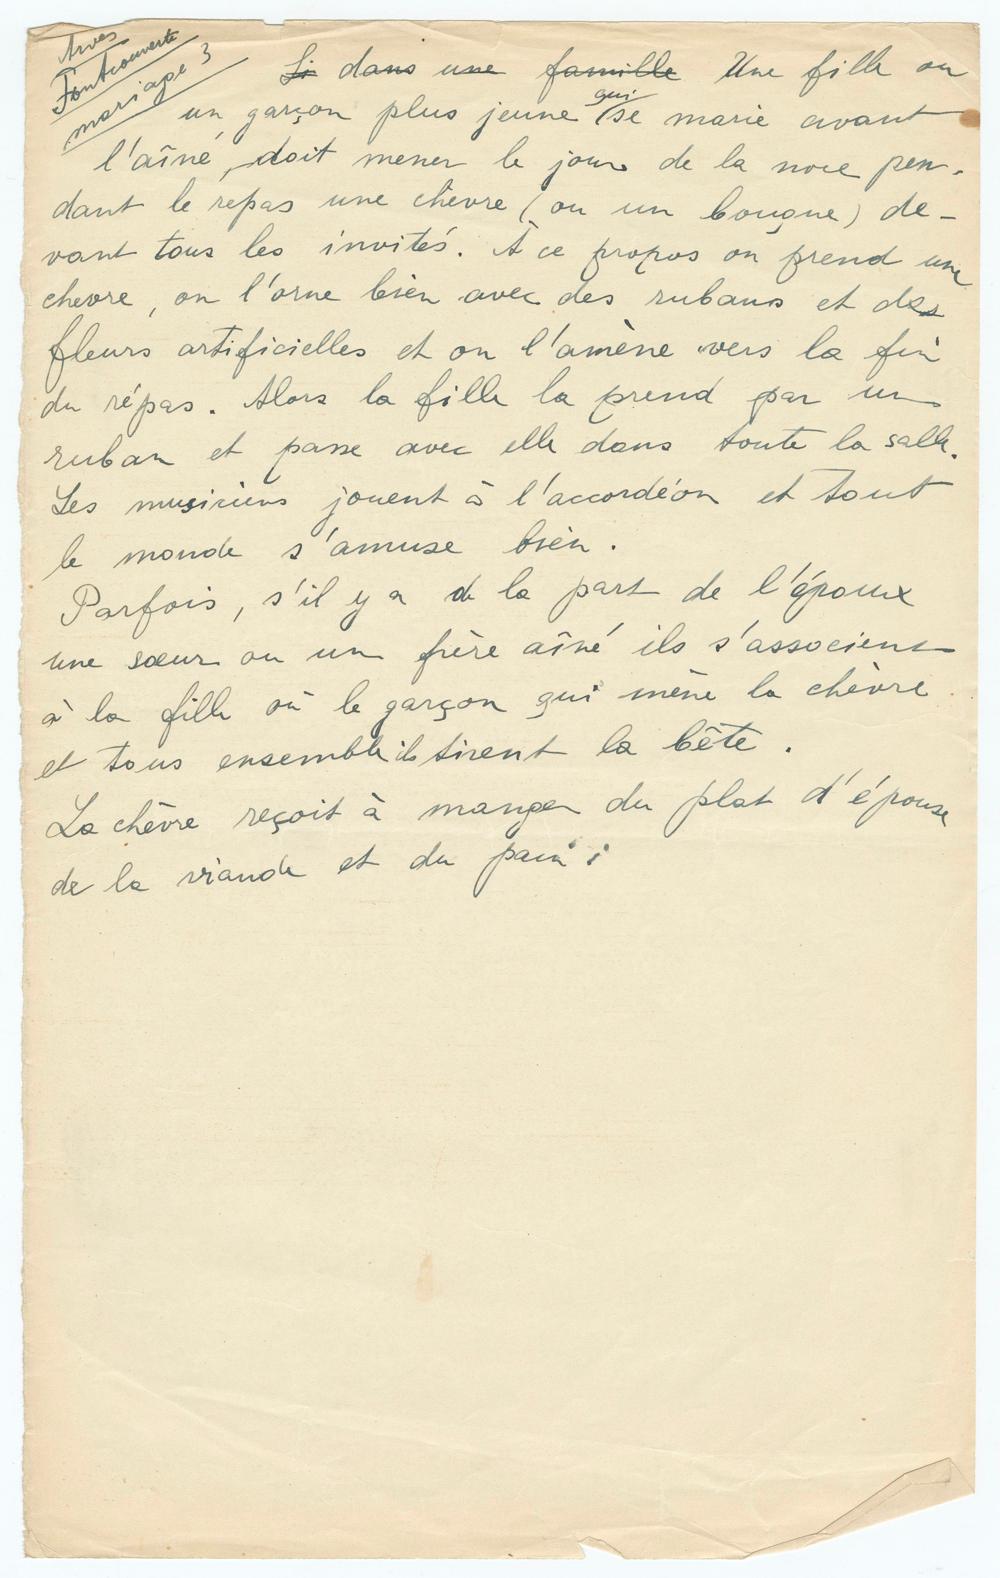 Arves
Fontcouverte
mariage 3
Si dans une famille Une fille ou
un garçon plus jeune qui se marie avant
l'aîné, doit mener le jour de la noce pen-
dant le repas une chèvre (ou un bouque) de-
vant tous les invités. À ce propos on prend une
chevre, on l'orne bien avec des rubans et des
fleurs artificielles et on l'amène vers la fin
du répas. Alors la fille la prend par un
ruban et passe avec elle dans toute la salle.
Les musiciens jouent à l'accordéon et tout
le monde s'amuse bien.
Parfois, s'il y a de la part de l'époux
une sœur ou un frère aîné ils s'associent
à la fille où le garçon qui mène la chèvre
et tous ensemble ils tirent la bête.
La chèvre reçoit à manger du plat d'épouse
de la viande et du pain :